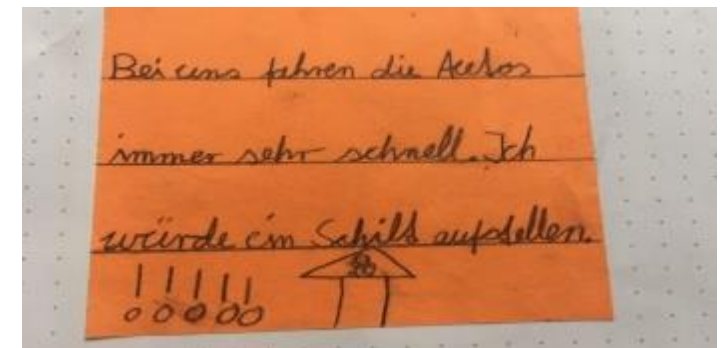 Bei uns fahren die Autos
immer sehr schnell. Ich
würde ein Schild aufstellen.
!!!!!